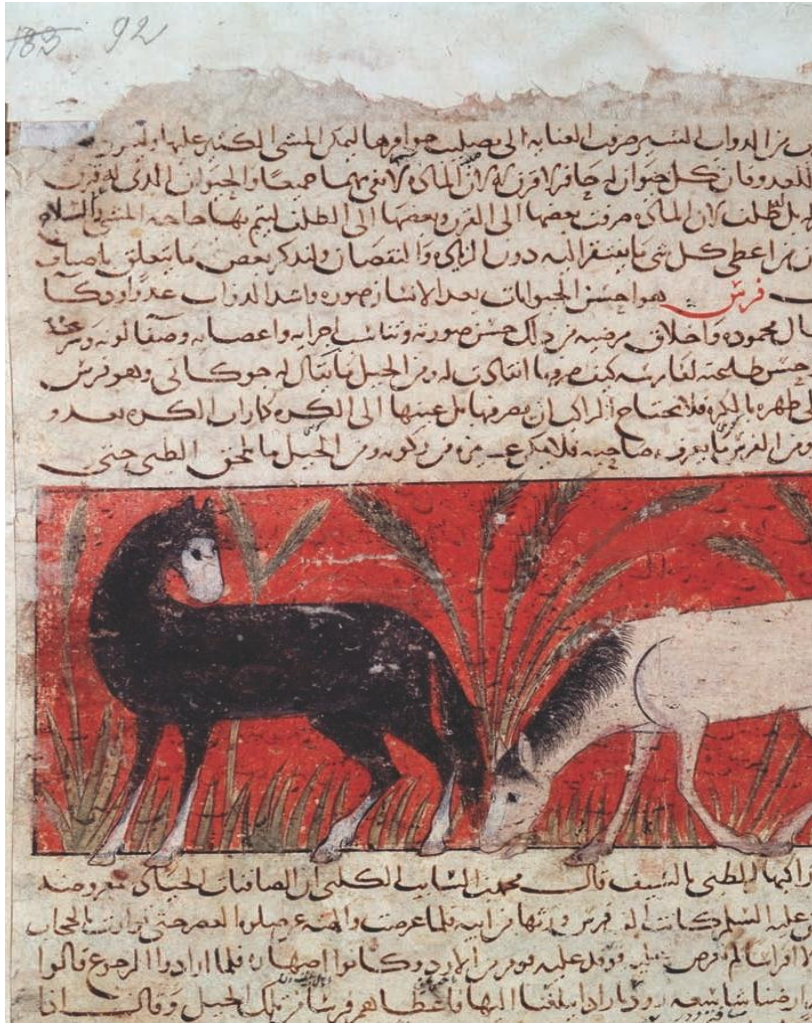 183 92
من الدواب السير صرفت العناية الى تصليب حوافرها ليمكن المشي الكثير عليها
للعدو فان كل حيوان له حافر لا قرن له لان المادة لا تفي بهما جميعا والحيوان الذي له قرن
بل ظلف لان المادة صرفت بعضها الى القرن وبعضها الى الظلف ليتم بها حاجة المشي والسلاح
من اعطى كل شي ما يفتقر اليه دون الزيادة والنقصان ولنذكر بعض ما يتعلق باصناف
فرس هو احسن الحيوانات بعد الانسان صورة واشد الدواب عدوا وذكا
محمودة واخلاق مرضية من ذلك حسن صورته وتناسب اجزايه واعضايه وصفا لونه
وحسن طاعته لفارسه كيف صرفها انقادت له ومن الخيل ما يقال له جوكاني وهو فرس
ظهره بالكرة فلا يحتاج الراكب ان يصرفها بل عينها الى الكره الكره يعدو
ومن الفرس ما يعرف صاحبه فلا يمكن غيره من ركوبه ومن الخيل ما يلحق الظبي حتى
راكبها الظبي بالسيف قال محمد بن السايب الكلبي ان الصافنات الجياد المعروضة
عليه السلم كانت الف فرس ورثها من ابيه فلما عرضت والهته عن صلوة العصر حتى توارت بالحجاب
الا افراسا لم تعرض عليه فوفد عليه قوم من الازد وكانوا اصهاره فلما ارادوا الرجوع قالوا
ارضنا شاسعة زودنا زادا يبلغنا اليها فاعطاهم فرسا من تلك الخيل وقال اذا